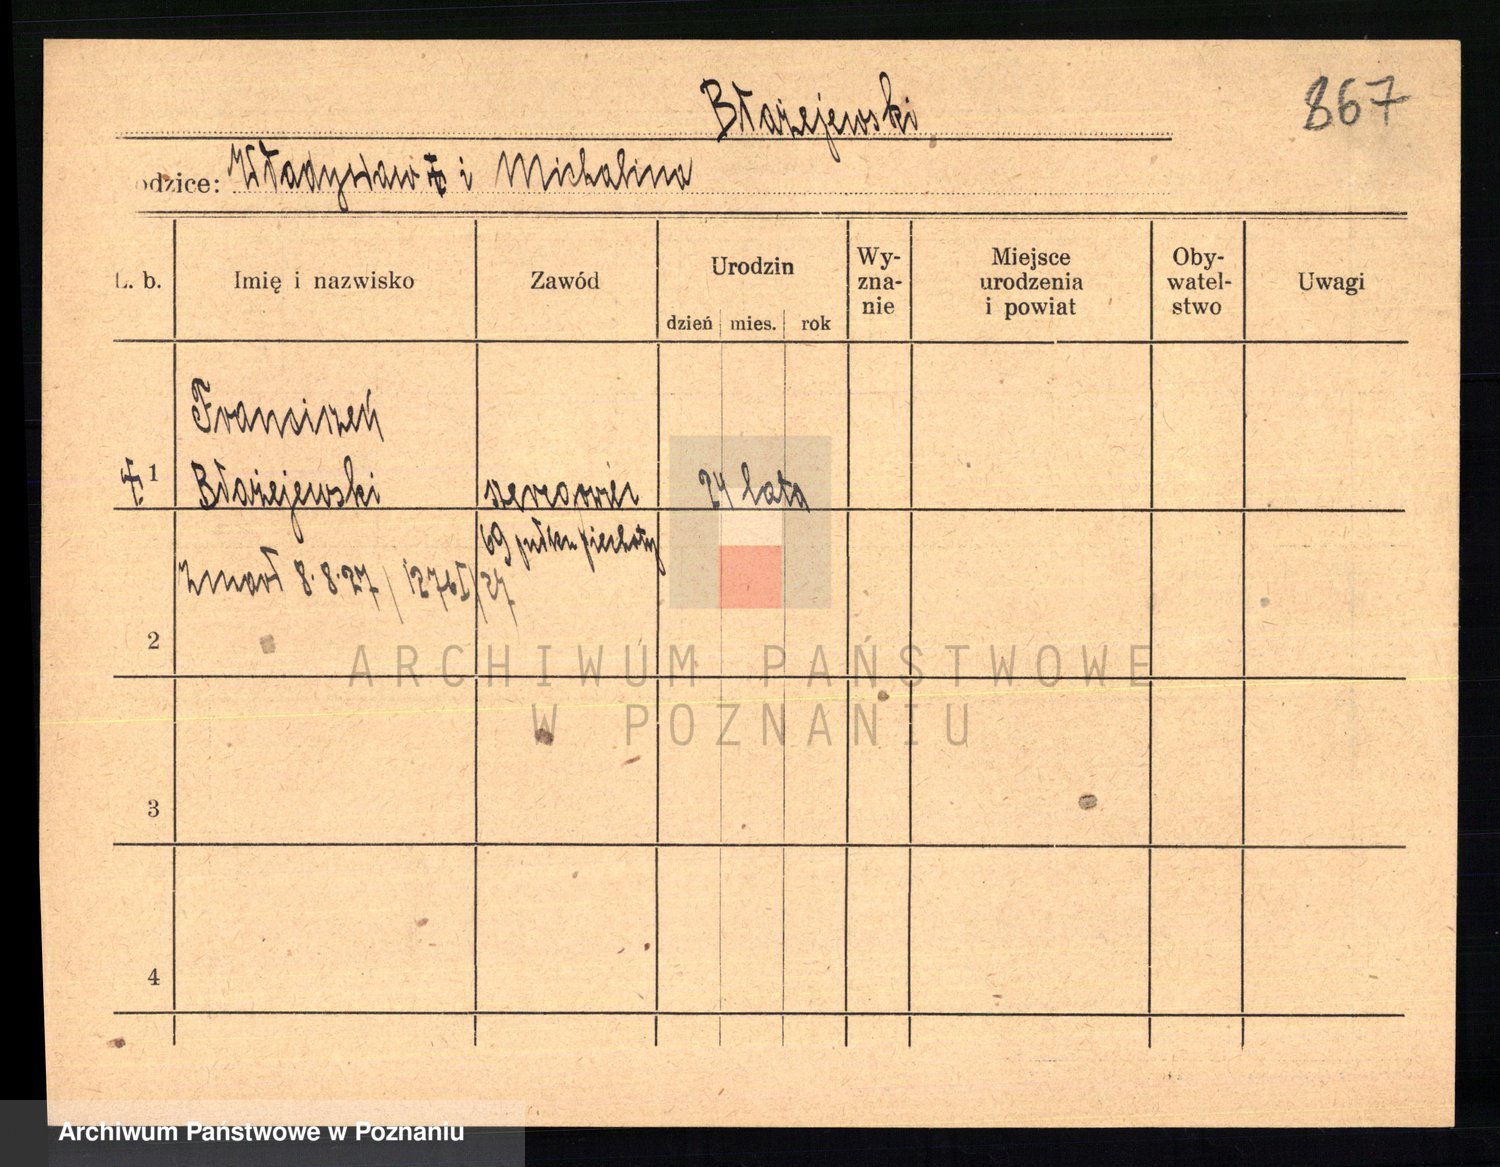 867
Błażejewski
odzice: Władysław i Michalina
L. b.
Imię i nazwisko
Zawód
Urodzin
dzień mies. rok
Wy-
zna-
nie
Miejsce
urodzenia
i powiat
Oby-
watel-
stwo
Uwagi
1
Franciszek
Błażejewski
szeregowiec
24 lata
69 pułku piechoty
zmarł 8.8.27 /
2
3
4
ARCHIWUM PAŃSTWOWE
W POZNANIU
Archiwum Państwowe w Poznaniu